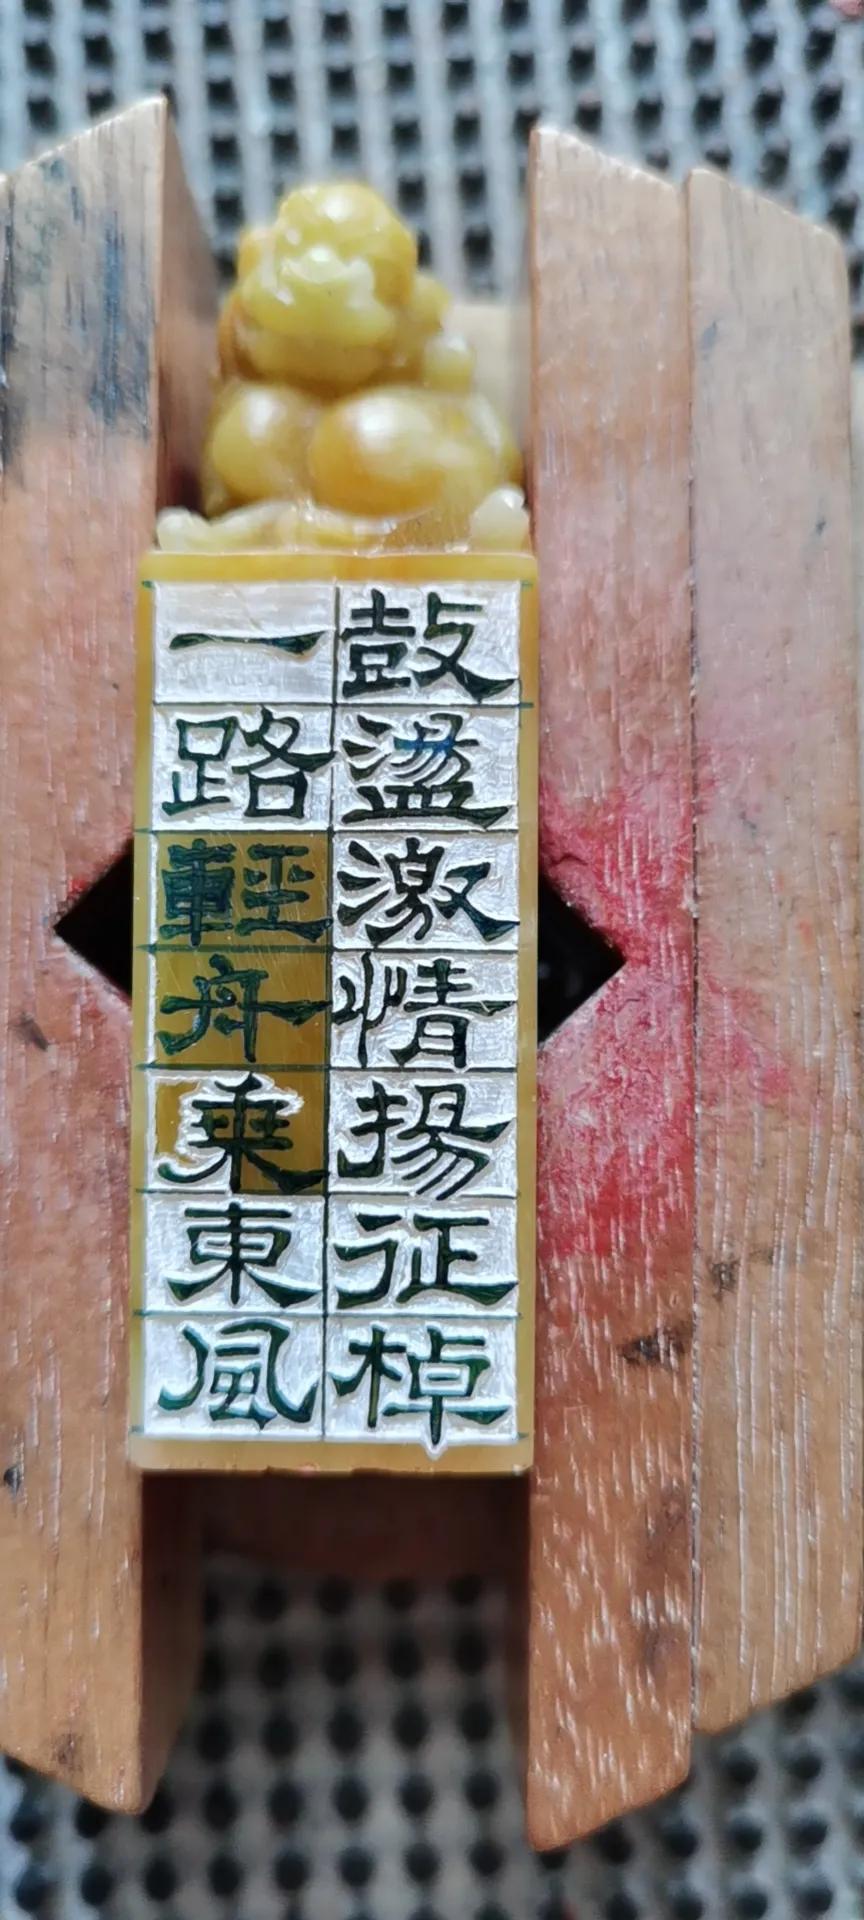 鼓盪激情揚征棹
一路輕舟乘東風